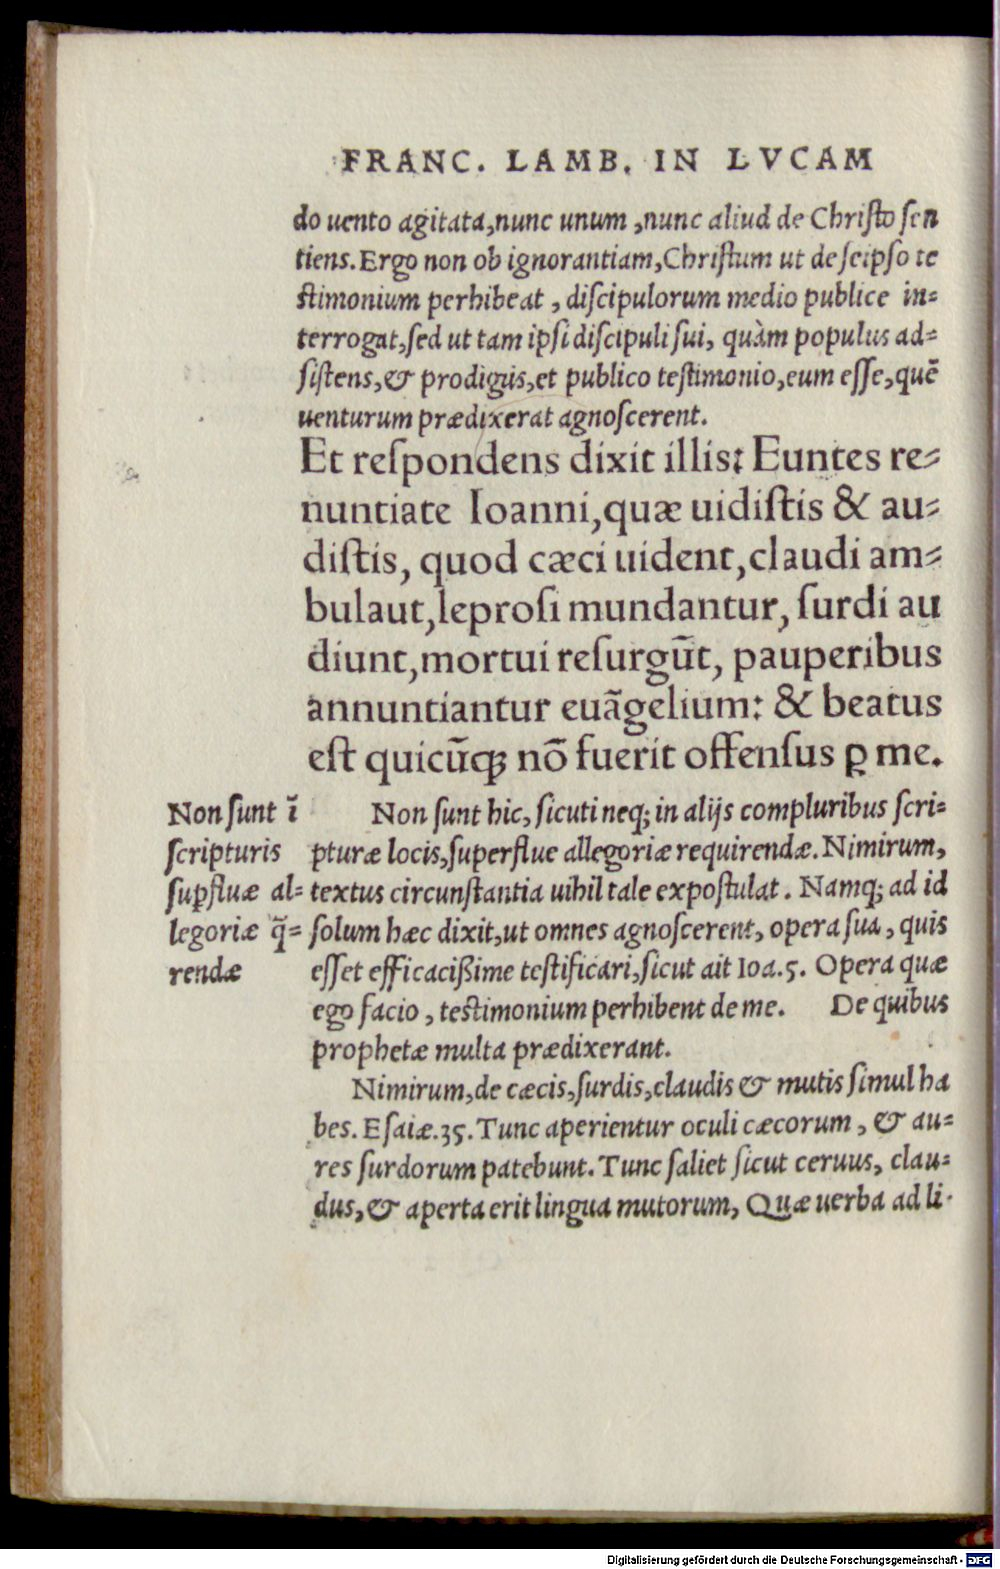 FRANC. LAMB. IN LVCAM
do uento agitata,nunc unum ,nunc aliud de Christo sen
tiens.Ergo non ob ignorantiam,Christum ut de seipso te
stimonium perhibeat , discipulorum medio publice in=
terrogat,sed ut tam ipsi discipuli sui, quàm populus ad=
sistens,& prodigijs,et publico testimonio,eum esse,quē
uenturum prædixerat agnoscerent.
Et respondens dixit illis: Euntes re=
nuntiate Ioanni,quæ uidistis & au=
distis, quod cæci uident,claudi am=
bulaut,leprosi mundantur, surdi au
diunt,mortui resurgūt, pauperibus
annuntiantur euāgelium: & beatus
est quicūq; nō fuerit offensus ꝑ me.
Non sunt ī
scripturis
suꝑfluæ al=
legoriæ q̄=
rendæ
Non sunt hic, sicuti neq; in alijs compluribus scri=
pturæ locis,superflue allegoriæ requirendæ.Nimirum,
textus circunstantia uihil tale expostulat. Namq; ad id
solum hæc dixit,ut omnes agnoscerent, opera sua , quis
esset efficacißime testificari,sicut ait Ioa.5. Opera quæ
ego facio , testimonium perhibent de me. De quibus
prophetæ multa prædixerant.
Nimirum,de cæcis,surdis,claudis & mutis simul ha
bes. Esaiæ.35.Tunc aperientur oculi cæcorum , & au=
res surdorum patebunt.Tunc saliet sicut ceruus, clau=
dus,& aperta erit lingua mutorum, Quæ uerba ad li-
Digitalisierung gefördert durch die Deutsche Forschungsgemeinschaft - DFG